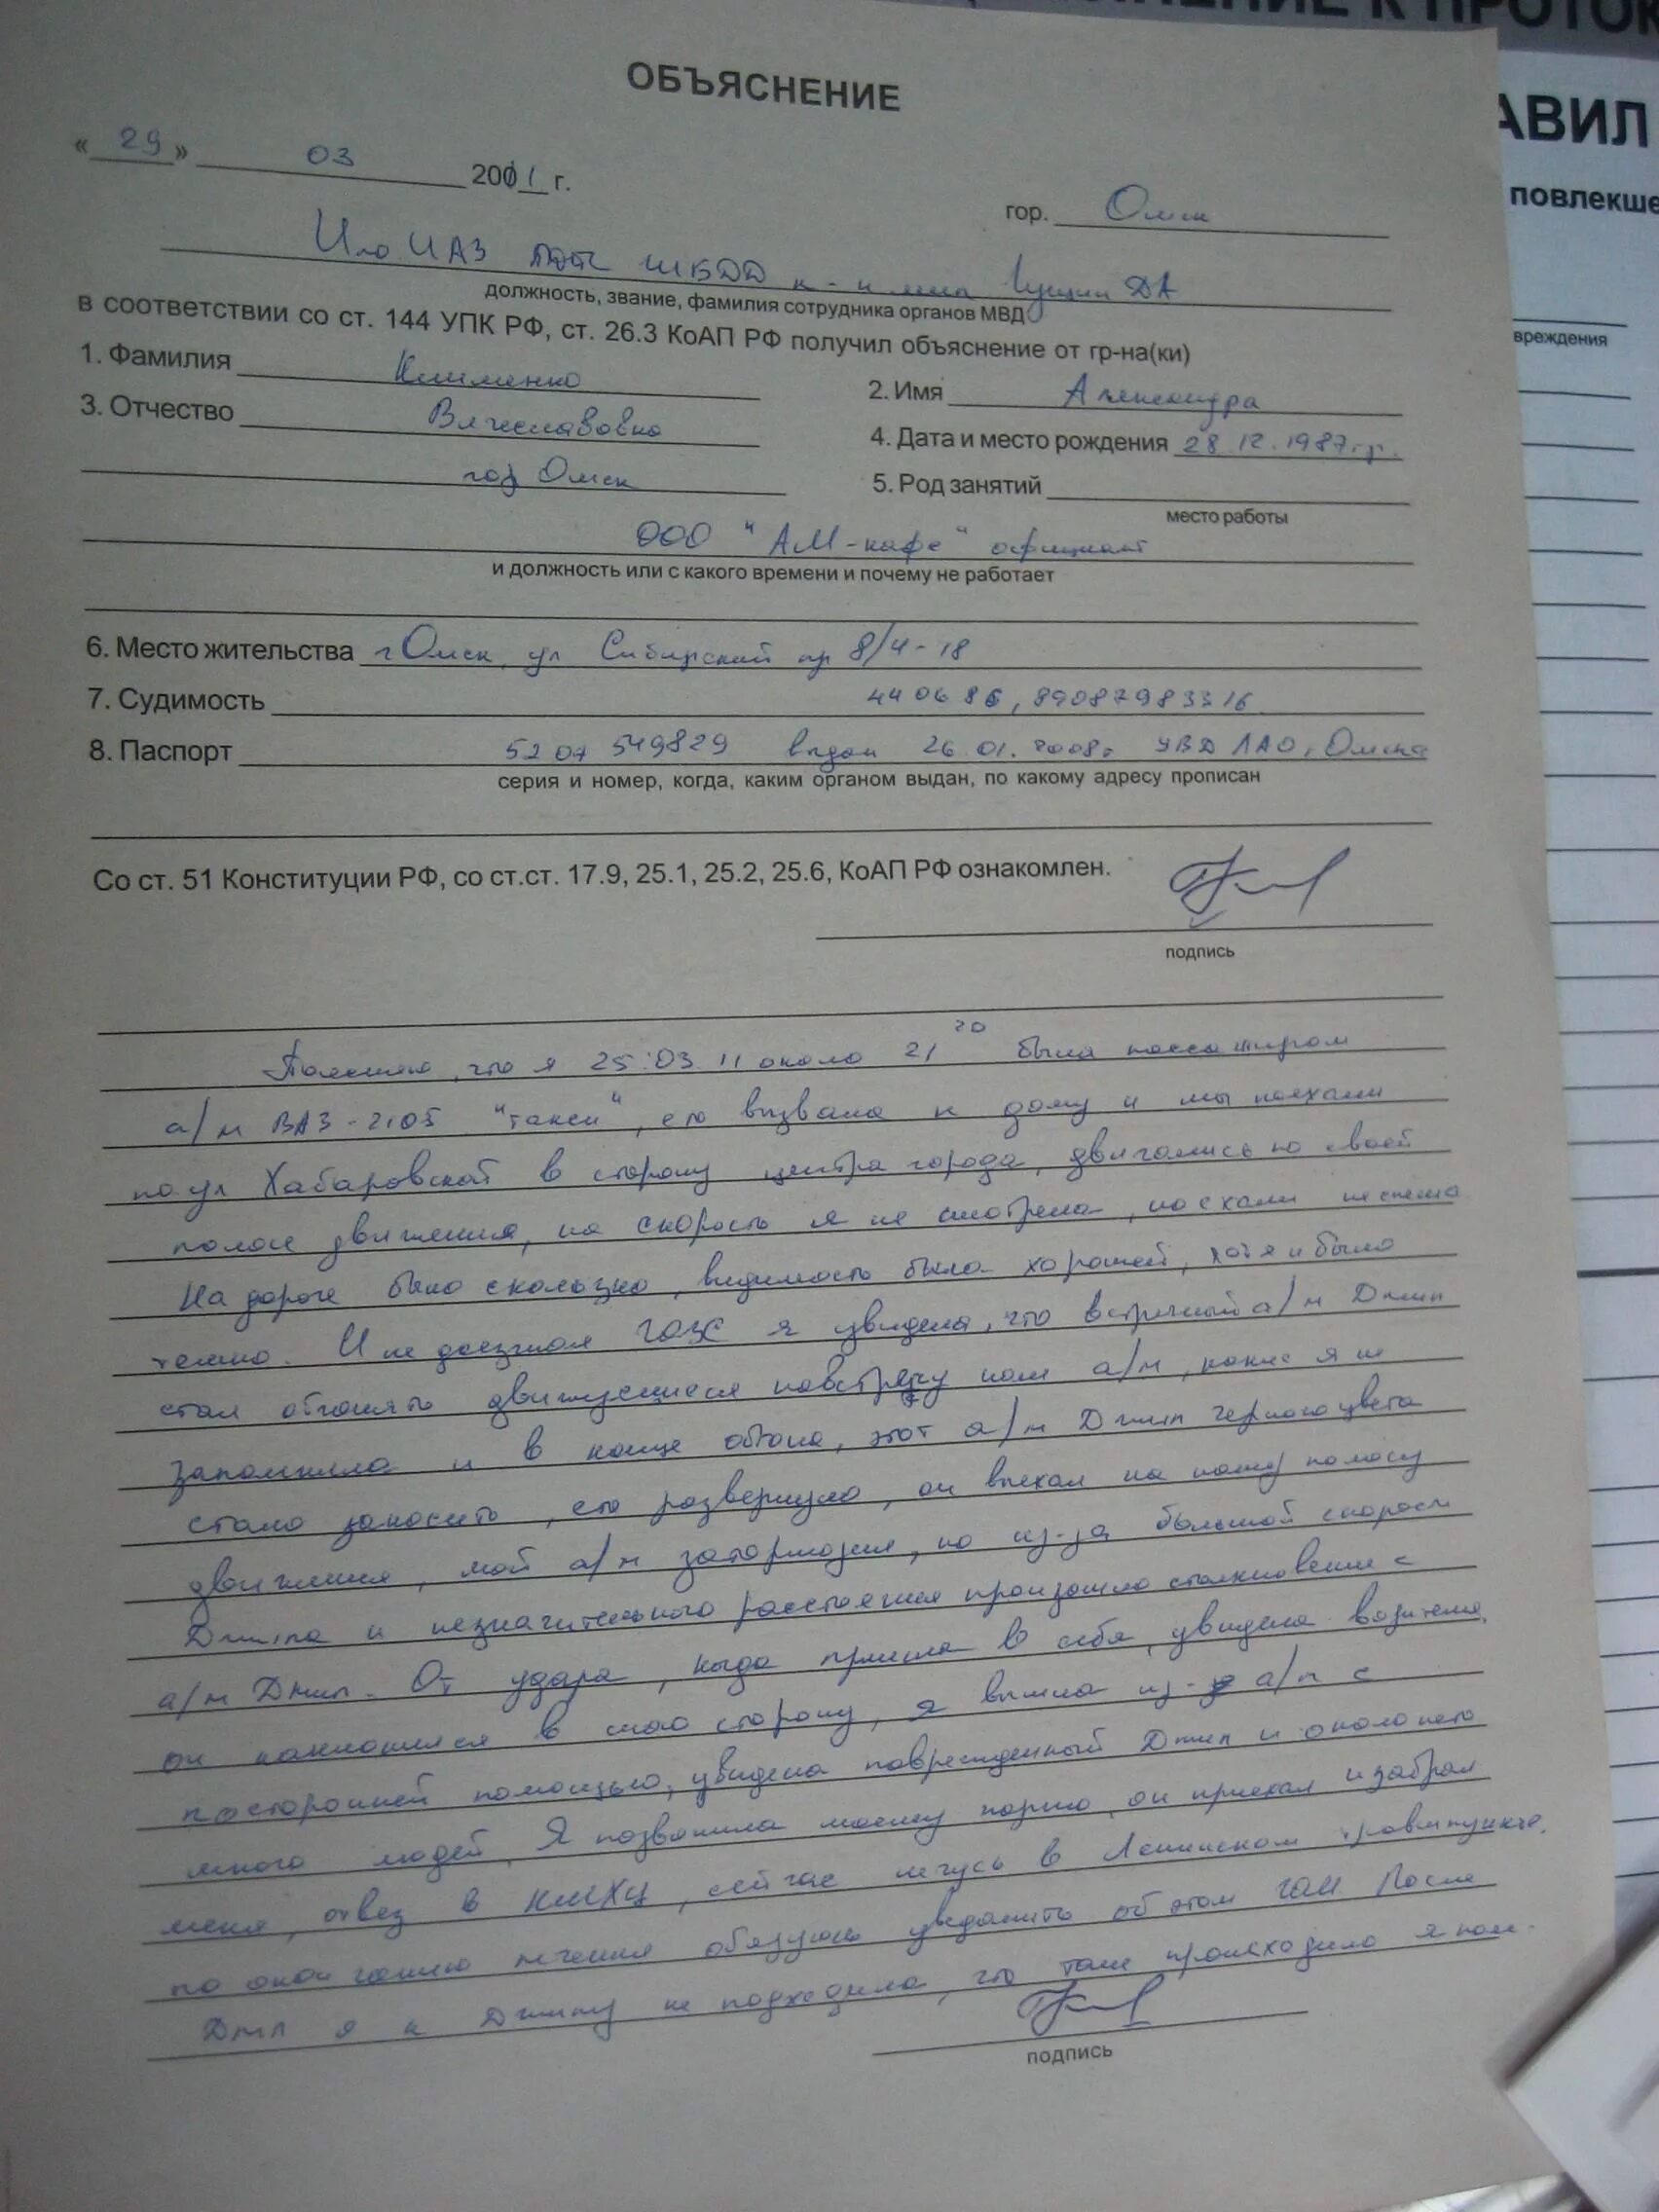 ОБЪЯСНЕНИЕ
« 29 » 03 2001 г.
гор. Омск
ИАЗ
должность, звание, фамилия сотрудника органов МВД
в соответствии со ст. 144 УПК РФ, ст. 26.3 КоАП РФ получил объяснение от гр-на(ки)
1. Фамилия Клименко
2. Имя Александра
3. Отчество Вячеславовна
4. Дата и место рождения 28.12.1987 г.р.
гор Омск
5. Род занятий
место работы
ООО "АМ-кафе" официант
и должность или с какого времени и почему не работает
6. Место жительства г Омск, ул Сибирский пр 8/4-18
7. Судимость 440686, 89087983316
8. Паспорт 5207 549829 выдан 26.01.2008г УВД ЛАО г Омска
серия и номер, когда, каким органом выдан, по какому адресу прописан
Со ст. 51 Конституции РФ, со ст.ст. 17.9, 25.1, 25.2, 25.6, КоАП РФ ознакомлен.
подпись
Поясняю, что я 25.03.11 около 21 20 была пассажиром
а/м ВАЗ-2105 "такси", его вызвала к дому и мы поехали
по ул Хабаровской в сторону центра города, двигались по своей
полосе движения, на скорость я не смотрела, но ехали не спеша
На дороге было скользко, видимость была хорошей, хотя и было
темно. И не доезжая ГАЗС я увидела, что встречный а/м Джип
стал обгонять движущиеся навстречу нам а/м, какие я не
запомнила и в конце обгона, этот а/м Джип черного цвета
стало заносить, его развернуло, он выехал на нашу полосу
движения, мой а/м затормозил, но из-за большой скорости
Джипа и незначительного расстояния произошло столкновение с
а/м Джип. От удара, когда пришла в себя, увидела водителя,
он наклонился в мою сторону, я вышла из а/м с
посторонней помощью, увидела поврежденный Джип и около него
много людей. Я позвонила моему парню, он приехал и забрал
меня, отвез в КМХЦ, сейчас лечусь в Ленинском травмпункте,
по окончанию лечения обязуюсь уведомить об этом ГАИ. После
ДТП я к Джипу не подходила, что там происходило я
подпись
АВИЛ
повлекше
вреждения